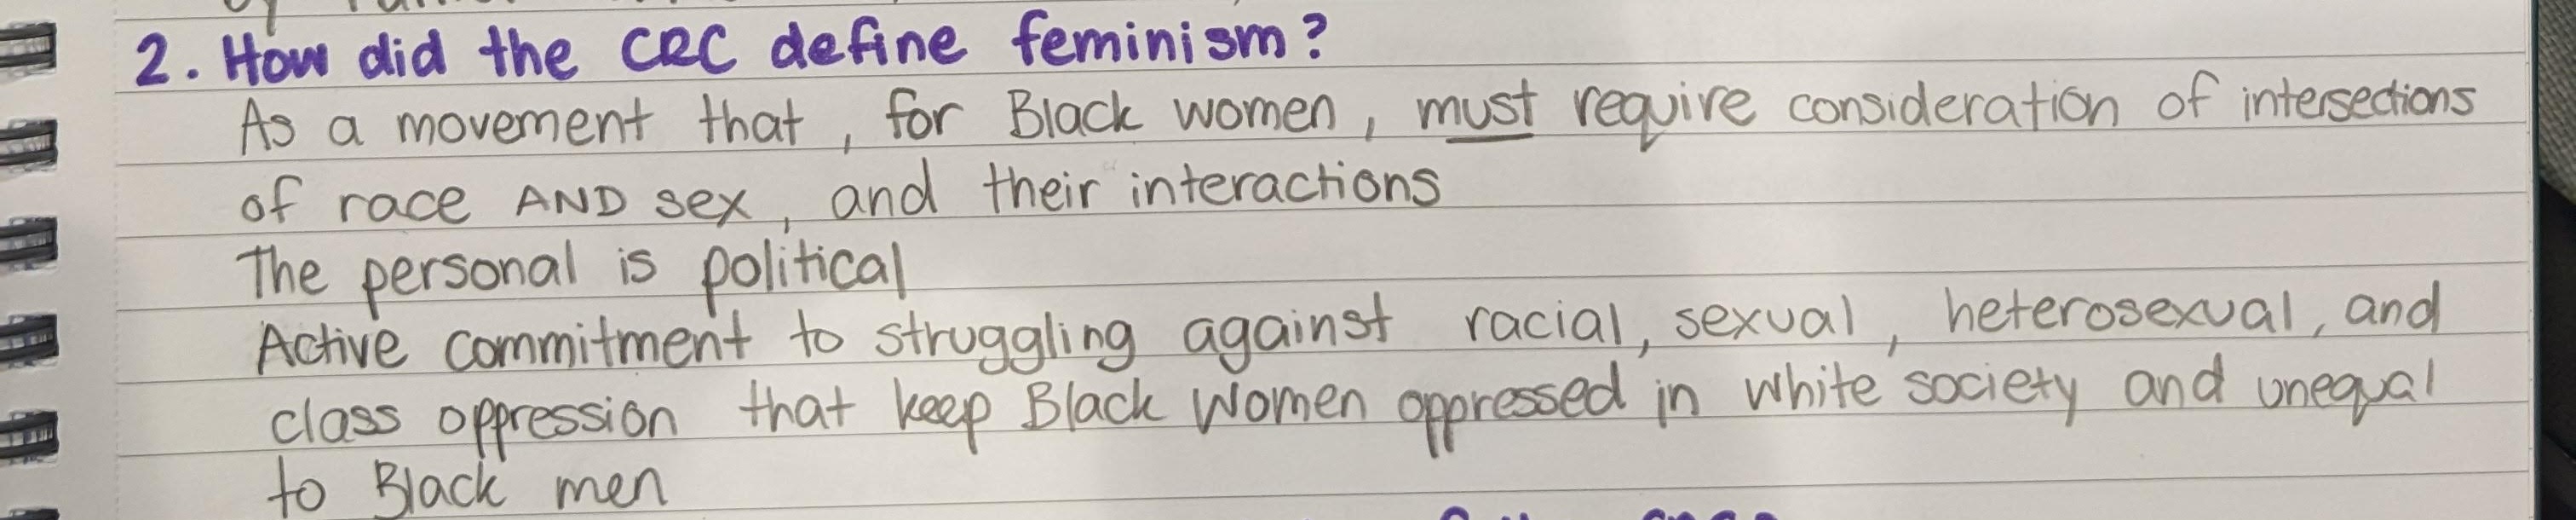 2. How did the CRC define feminism?
As a movement that, for Black women, must require consideration of intersections
of race AND sex, and their interactions
The personal is political
Active commitment to struggling against racial, sexual, heterosexual, and
class oppression that keep Black Women oppressed in white society and unequal
to Black men